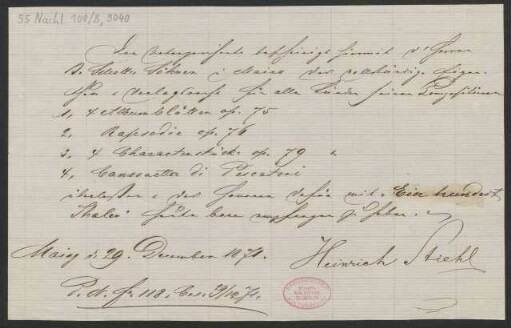 55 Nachl 100/B, 9040
Der Unterzeichnete bescheinigt hiermit d. Herren
B. Schott's Söhnen i. Mainz das vollständige Eigen-
u. Verlagsrecht für alle Länder seiner Compositionen
1, 4 Albumblätter op. 75
2, Rapsodie op. 76
3, 4 Charakterstücke op. 79
4, Canzonetta di Pescatori
überlassen u. das Honorar dafür mit Ein hundert
Thaler heute baar empfangen zu haben.
Mainz d. 29. December 1871.
Heinrich Stiehl